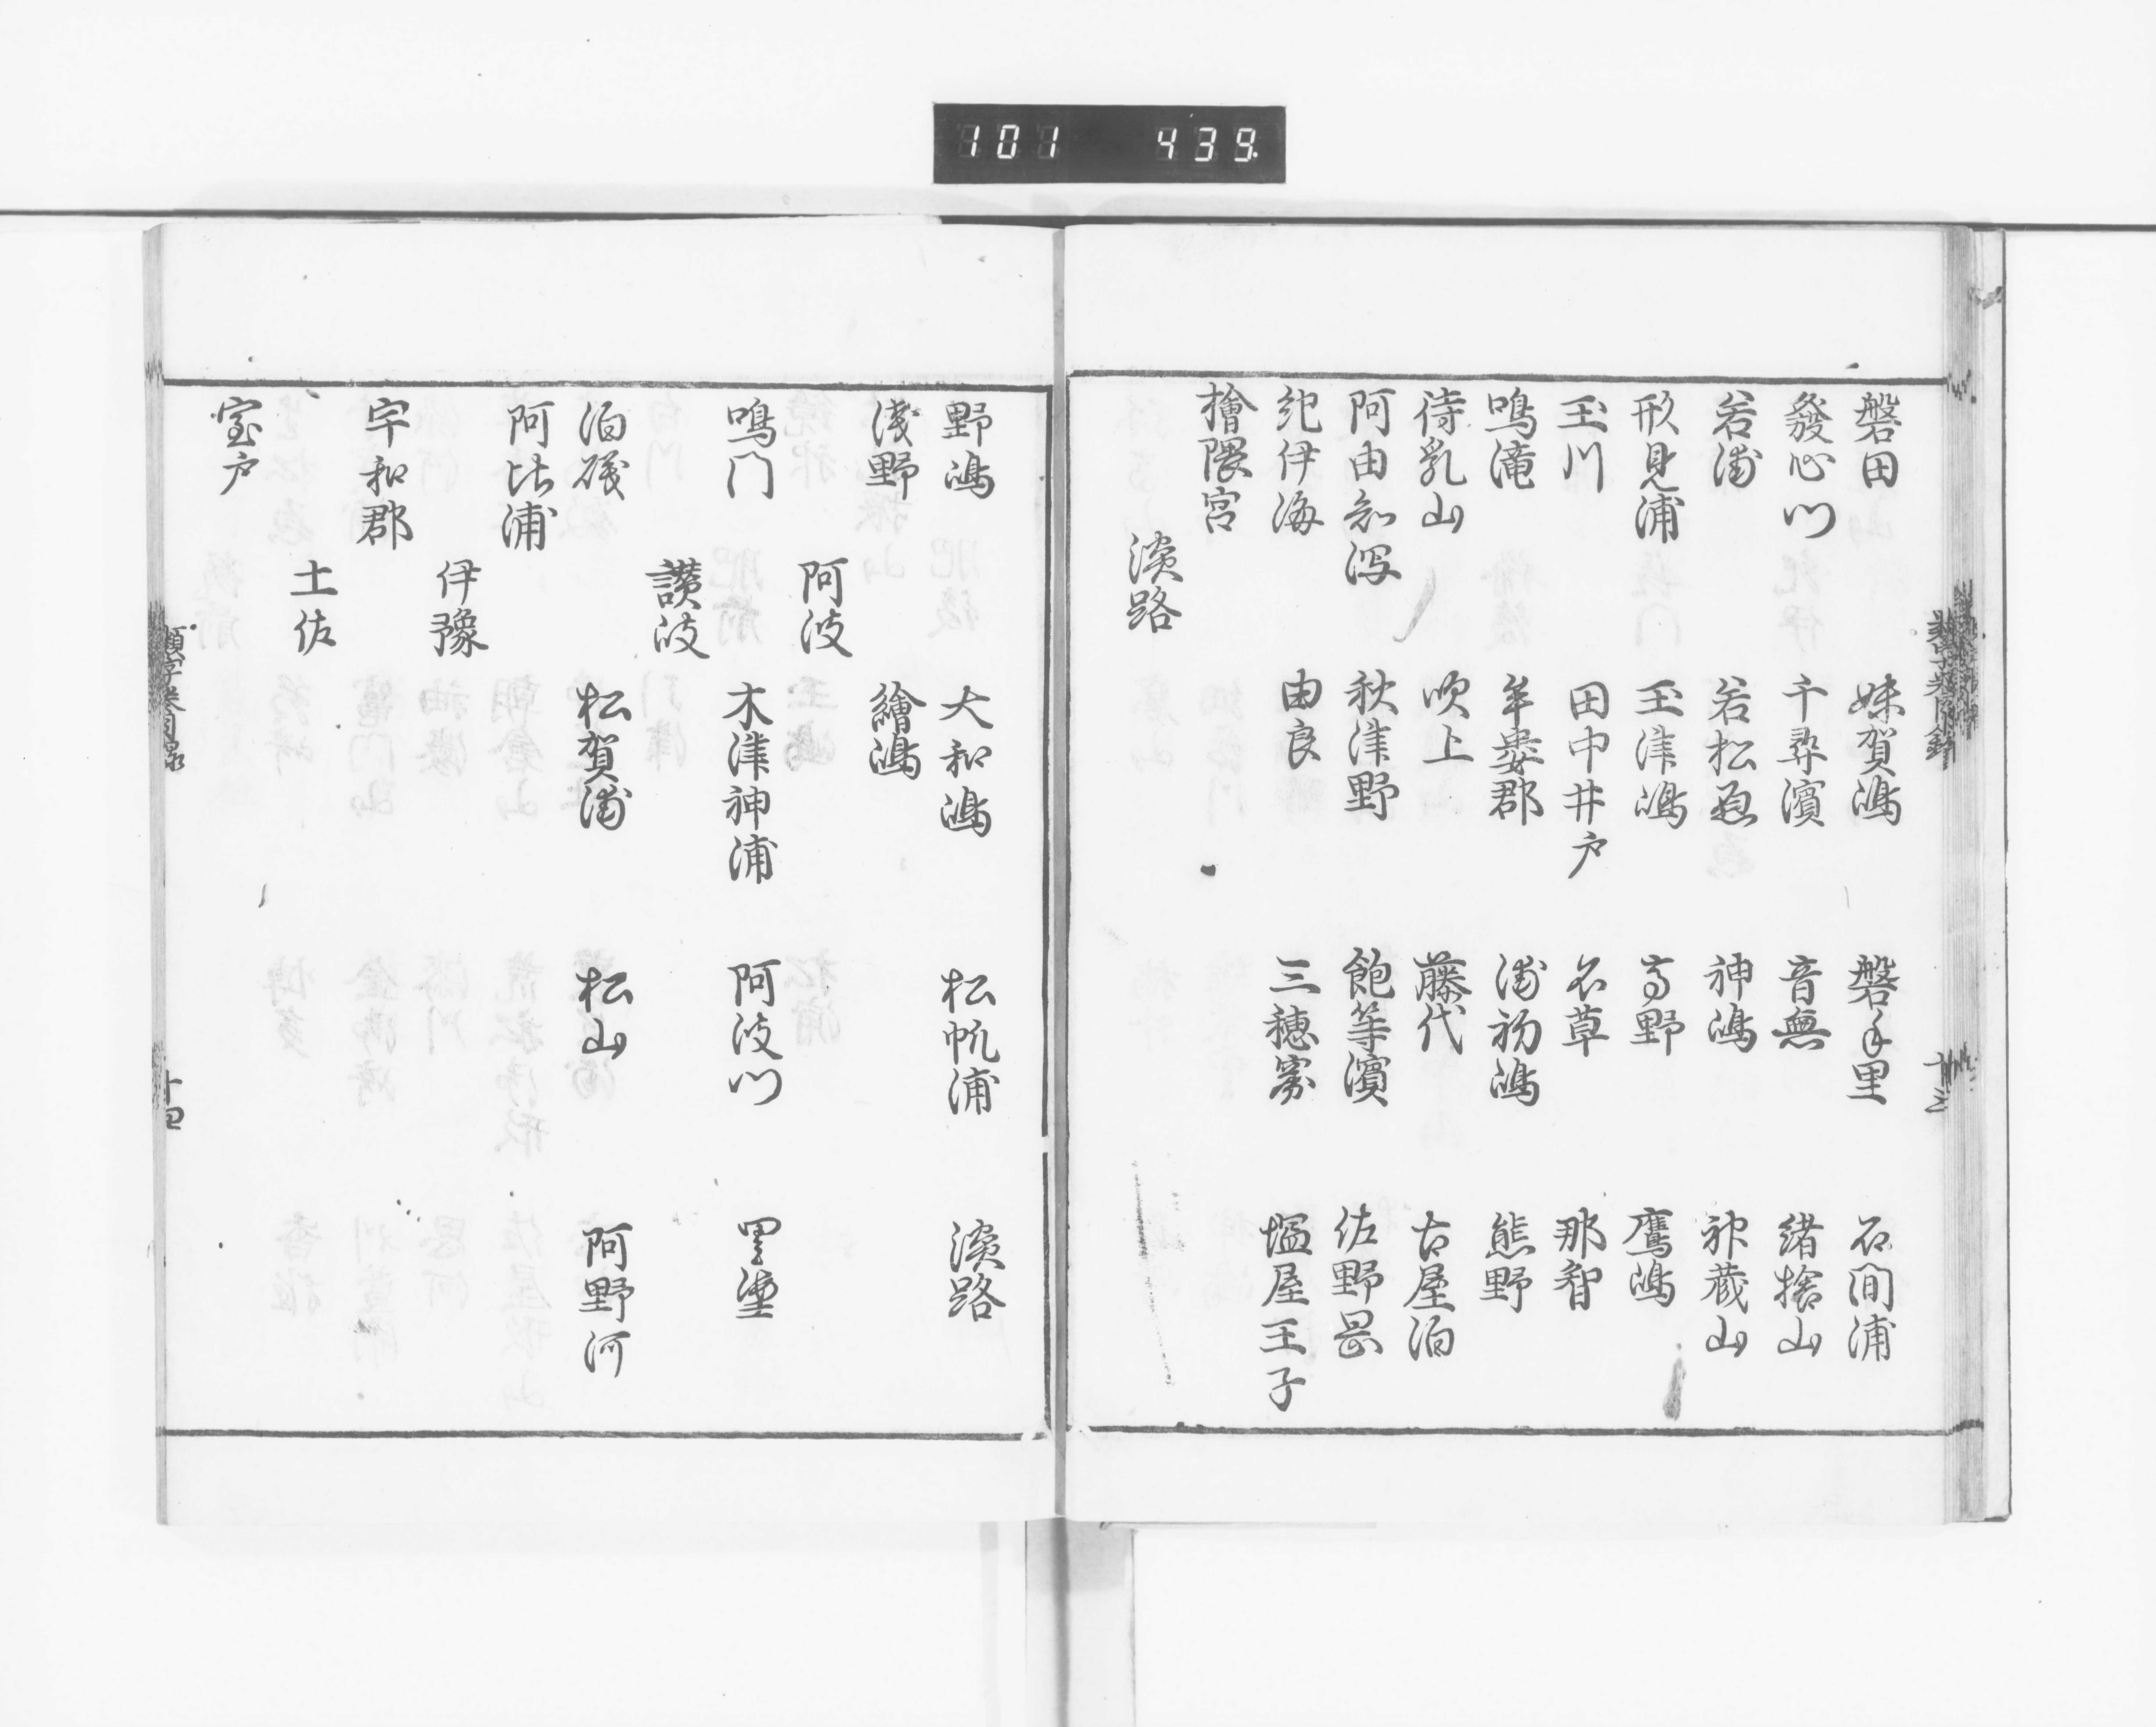 101 439
磐田 妹賀嶋 磐手里 石間浦
發心門 千尋濱 音無 緒捨山
若浦 若松原 神嶋 神蔵山
形見浦 玉津嶋 高野 鷹嶋
玉川 田中井戸 名草 那智
鳴滝 牟婁郡 浦初嶋 熊野
待乳山 吹上 藤代 古屋泊
阿由知潟 秋津野 飽等濱 佐野岡
紀伊海 由良 三穂 塩屋王子
檜隈宮
淡路
野嶋 大和嶋 松帆浦 淡路
淺野 繪嶋
阿波
鳴門 木津神浦 阿波門
讃岐
泊磯 松賀浦 松山 阿野河
阿比浦
伊豫
宇和郡
土佐
室戸
類字巻目録 十四